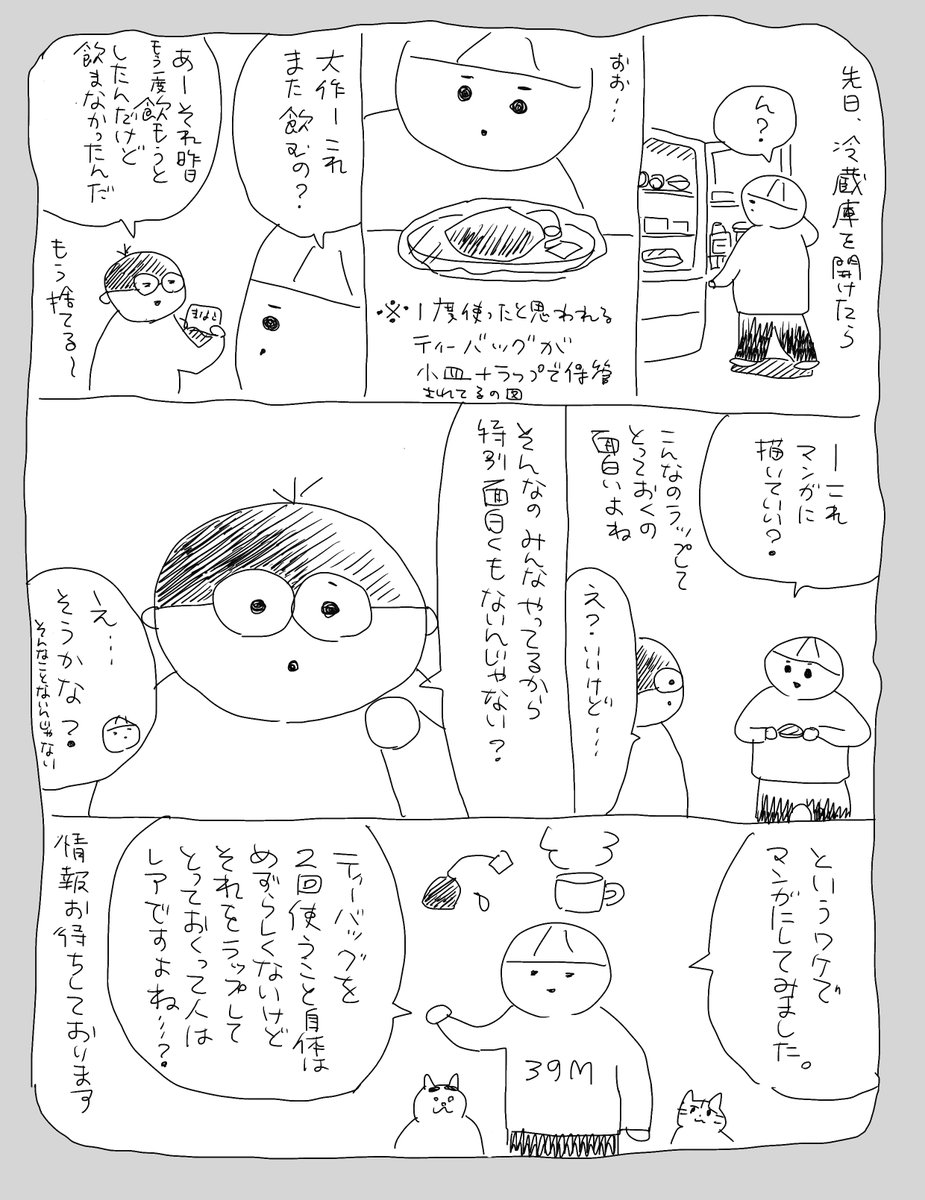 先日、冷蔵庫を開けたら
ん?
おお…
※1度使ったと思われる
ティーバッグが
小皿+ラップで保管
されてるの図
大作ーこれ
また飲むの?
あーそれ昨日
もう一度飲もうと
したんだけど
飲まなかったんだ
もう捨てる〜
ーこれ
マンガに
描いていい?
こんなのラップして
とっておくの
面白いよね
え?いいけど…
そんなのみんなやってるから
特別面白くもないんじゃない?
え…
そうかな?
そんなことないんじゃない
というワケで
マンガにしてみました。
39M
ティーバッグを
2回使うこと自体は
めずらしくないけど
それをラップして
とっておくって人は
レアですよね…?
情報お待ちしております